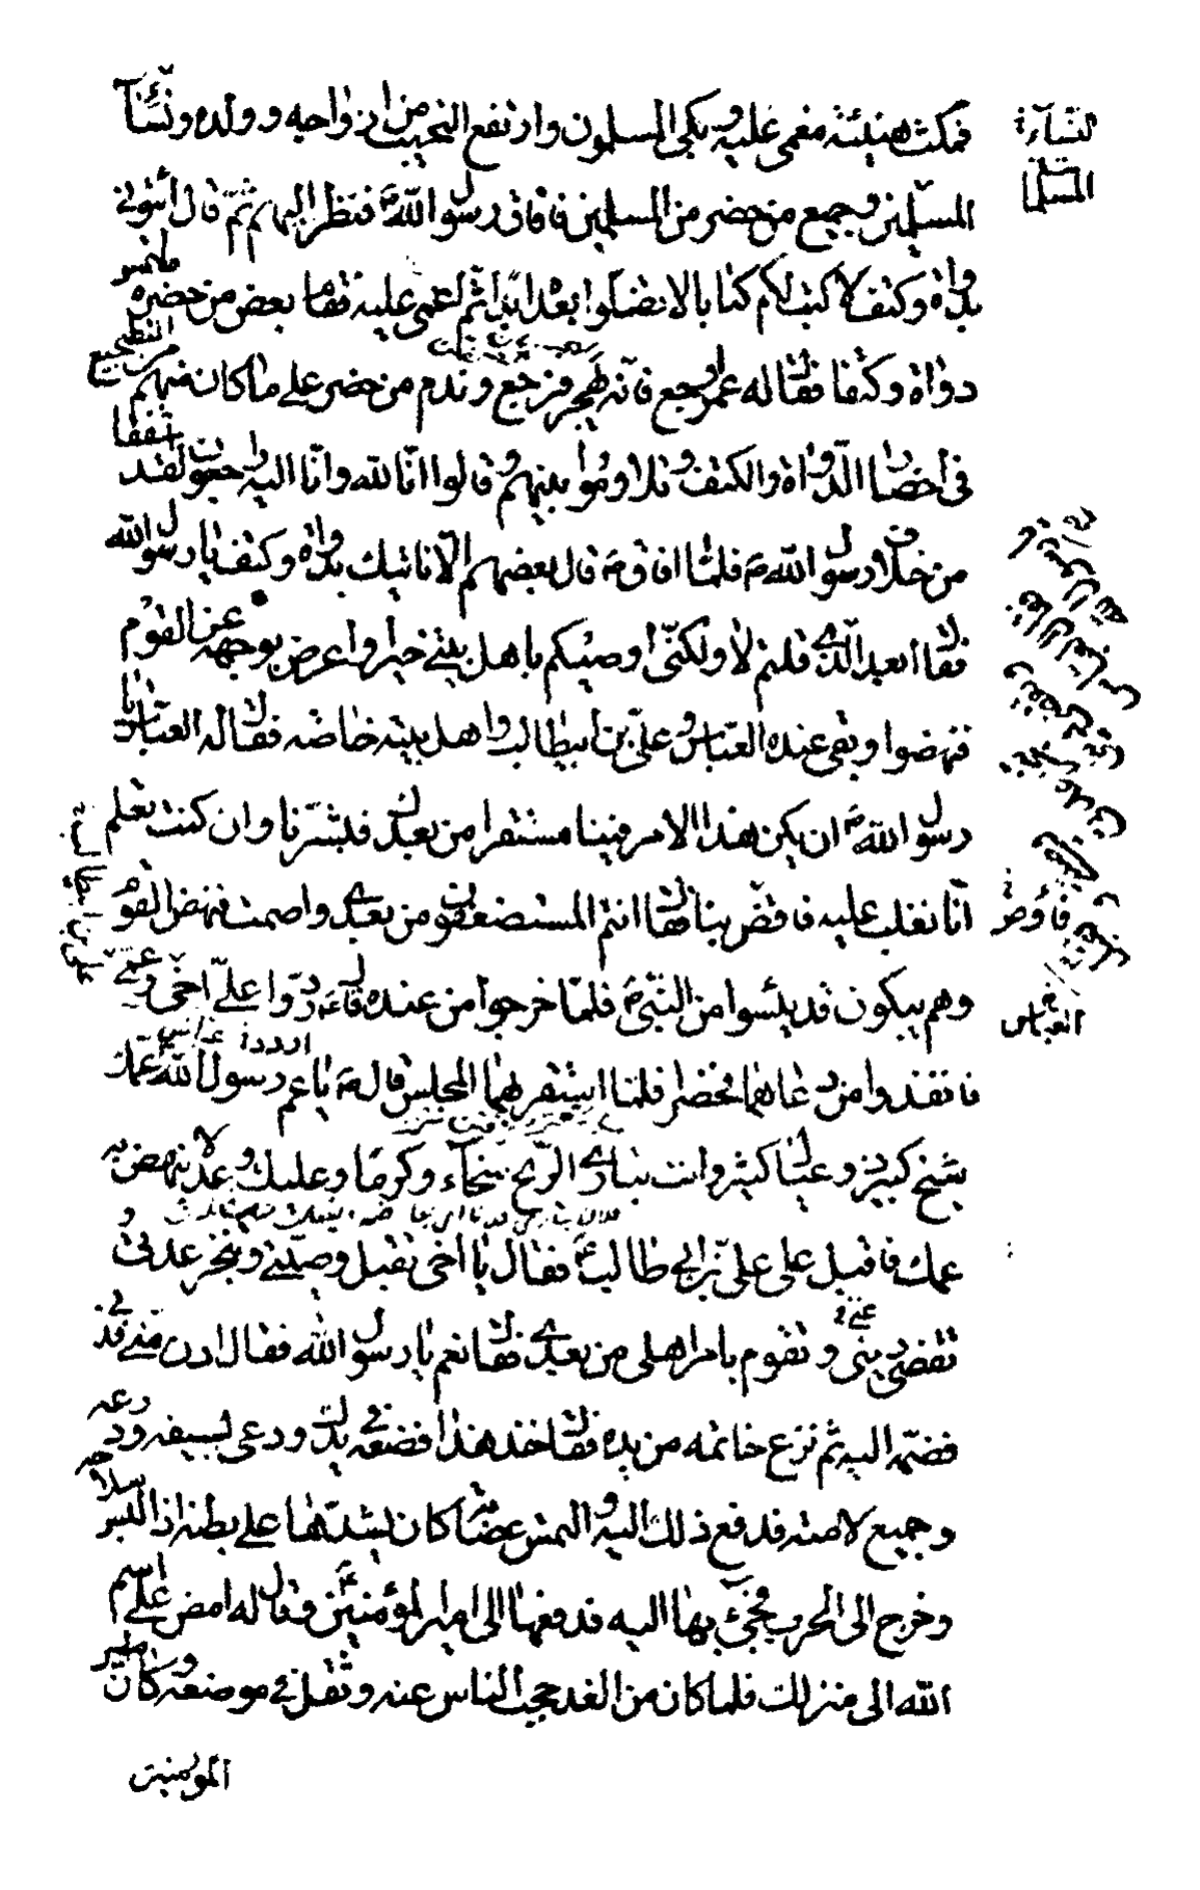 فمكث هنيئة مغمى عليه وبكى المسلمون وارتفع النحيب من ازواجه وولده ونسآء
المسلمين وجميع من حضر من المسلمين فافاق رسول الله ص فنظر اليهم ثم قال ائتونى
بدواة وكتف لاكتب لكم كتابا لا تضلوا بعده ابدا ثم اغمى عليه فقام بعض من حضره يلتمس
دواة وكتفا فقال له عمر ارجع فانه يهجر فرجع وندم من حضر على ما كان منهم
فى احضار الدواة والكتف وتلاوموا بينهم وقالوا انا لله وانا اليه راجعون لقد اشفقنا
من خلاف رسول الله ص فلما افاق ص قال بعضهم الا ناتيك بدواة وكتف يا رسول الله
فقال ابعد الذى قلتم لا ولكنى اوصيكم باهل بيتى خيرا واعرض بوجهه عن القوم
فنهضوا وبقى عنده العباس وعلى بن ابيطالب واهل بيته خاصة فقال له العباس يا
رسول الله ص ان يكن هذا الامر فينا مستقرا من بعدك فبشرنا وان كنت تعلم
انا نغلب عليه فاقض بنا فقال انتم المستضعفون من بعدى واصمت فنهض القوم
وهم يبكون قد يئسوا من النبى ص فلما خرجوا من عنده قال ع ردوا على اخى وعمى
فانفذوا من دعاهما فحضرا فلما استقر بهما المجلس قال ص يا عم رسول الله عمك
شيخ كبير ذو عيال كثير وانت تبارى الريح سخآء وكرما وعليك وعد لا ينهض به
عمك فاقبل على على بن ابى طالب ع فقال يا اخى تقبل وصيتى وتنجز عدتى و
تقضى دينى وتقوم بامر اهلى من بعدى فقال نعم يا رسول الله فقال ادن منى فدنى
فضمه اليه ثم نزع خاتمه من يده فقال خذ هذا فضعه فى يدك ودعى بسيفه ودرعه
وجميع لامته فدفع ذلك اليه والتمس عصابة كان يشدها على بطنه اذا لبس سلاحه
وخرج الى الحرب فجئ بها اليه فدفعها الى امير المؤمنين ع وقال له امض على اسم
الله الى منزلك فلما كان من الغد حجب الناس عنه وثقل فى موضعه وكان امير
المومنين
لنسآء
المسلمات
فاوص
العباس